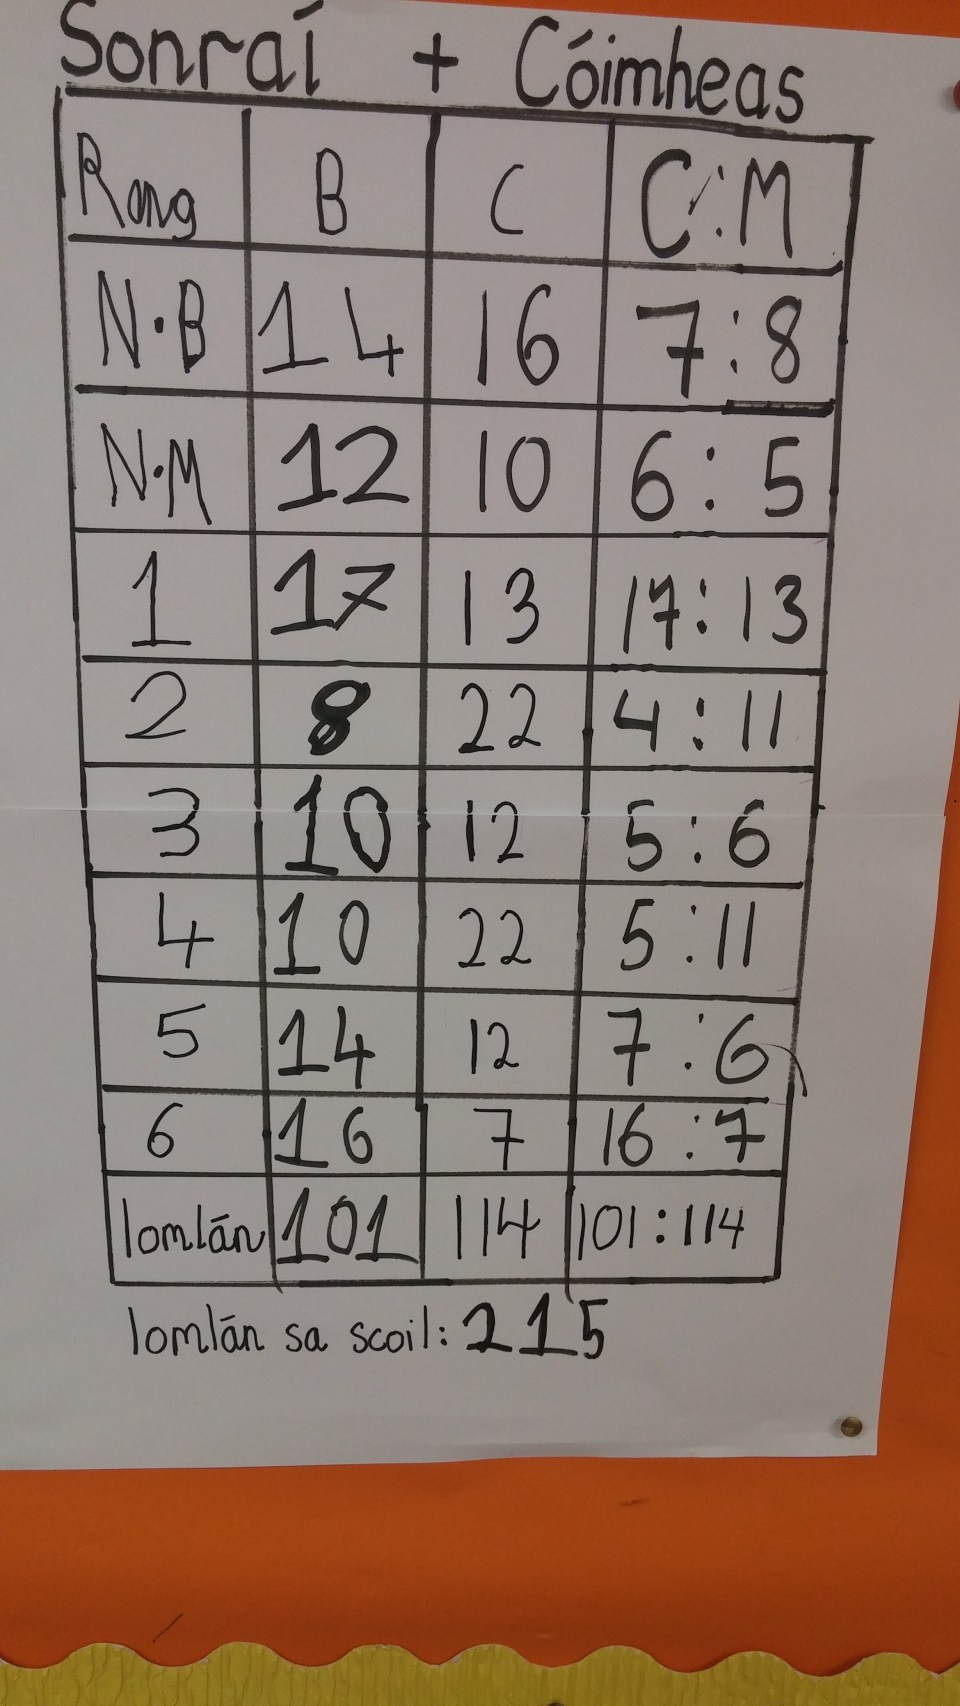 Sonraí + Cóimheas
Rang B C C:M
N.B 14 16 7:8
N.M 12 10 6:5
1 17 13 17:13
2 8 22 4:11
3 10 12 5:6
4 10 22 5:11
5 14 12 7:6
6 16 7 16:7
Iomlán 101 114 101:114
Iomlán sa scoil: 215